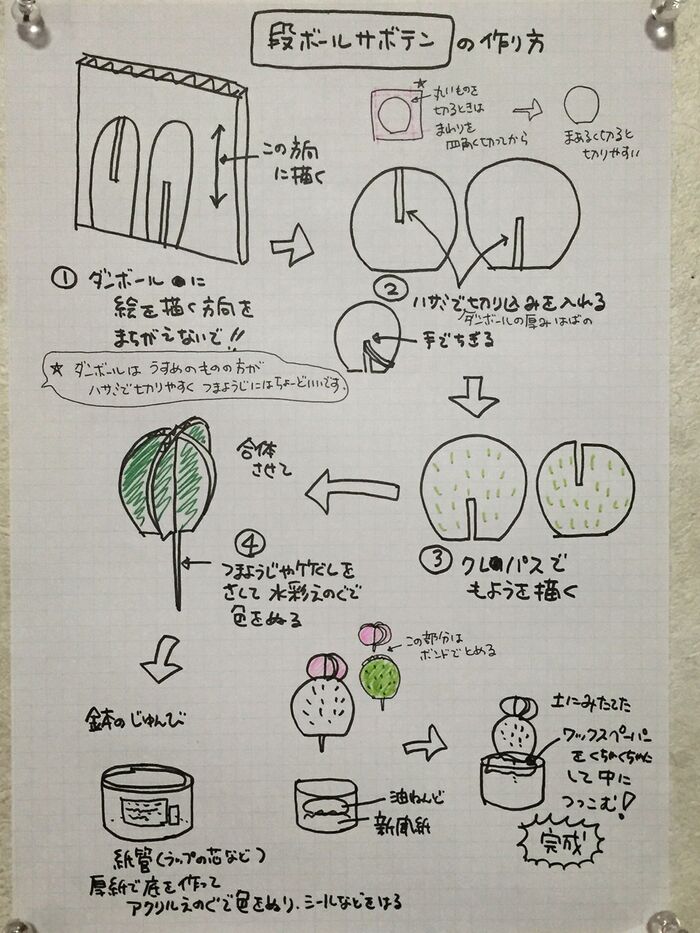 段ボールサボテンの作り方
★
丸いものを
切るときは
まわりを
四角く切ってから
まあるく切ると
切りやすい
この方向
に描く
① ダンボールに
絵を描く方向を
まちがえないで!!
★ ダンボールは うすめのものの方が
ハサミで切りやすく つまようじにはちょーどいいです。
② ハサミで切り込みを入れる
ダンボールの厚みはばの
手でちぎる
③ クレパスで
もようを描く
合体
させて
④
つまようじや竹ぐしを
さして 水彩えのぐで
色をぬる
この部分は
ボンドでとめる
鉢のじゅんび
紙管(ラップの芯など)
厚紙で底を作って
アクリルえのぐで色をぬり、シールなどをはる
油ねんど
新聞紙
土にみたてた
ワックスペーパー
をくちゃくちゃに
して中に
つっこむ!
完成